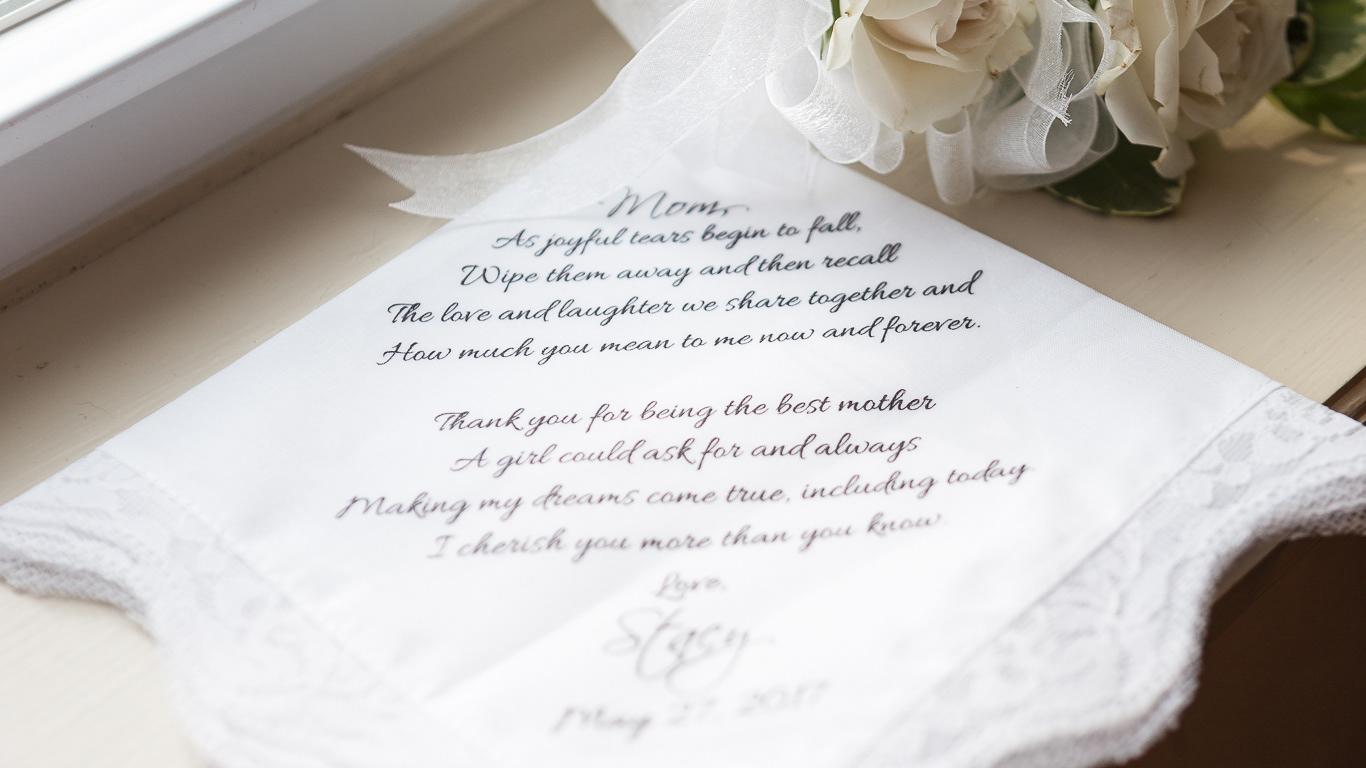 Mom,
As joyful tears begin to fall,
Wipe them away and then recall
The love and laughter we share together and
How much you mean to me now and forever.
Thank you for being the best mother
A girl could ask for and always
Making my dreams come true, including today
I cherish you more than you know.
Love,
Stacy
May 27, 2017